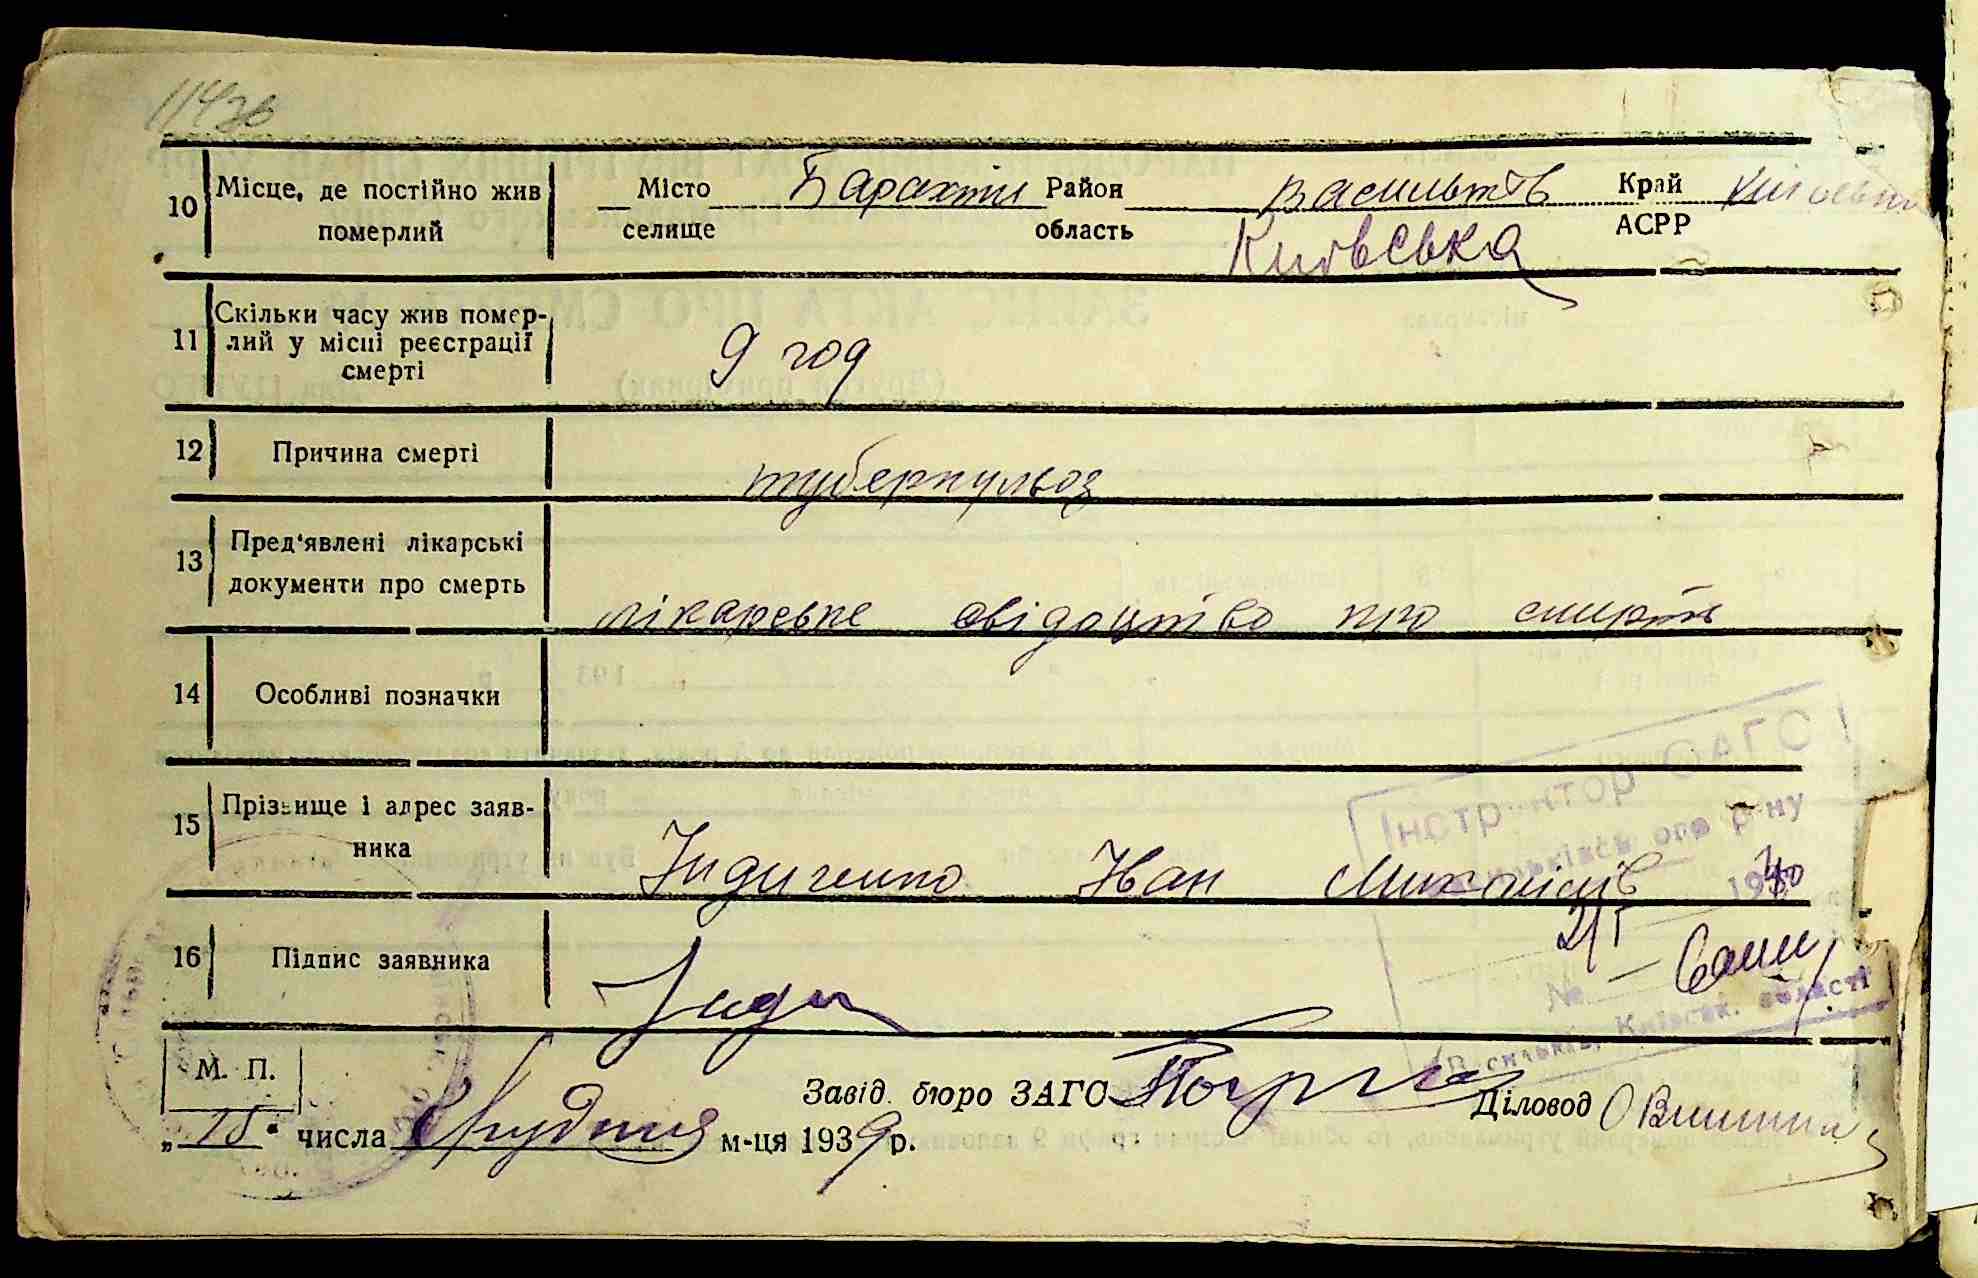 10 Місце, де постійно жив Місто Барахти Район Васильків Край
померлий селище область Київська АСРР
11 Скільки часу жив помер-
лий у місці реєстрації 9 год
смерті
12 Причина смерті туберкульоз
13 Пред'явлені лікарські
документи про смерть лікарське свідоцтво про смерть
14 Особливі позначки
Інструктор ЗАГС
15 Прізвище і адрес заяв-
ника Індиченко Іван р-ну
1940
16 Підпис заявника Інди
№
Київськ. області
М. П. Завід. бюро ЗАГС Діловод
„ 15 “ числа Грудня м-ця 1939 р.